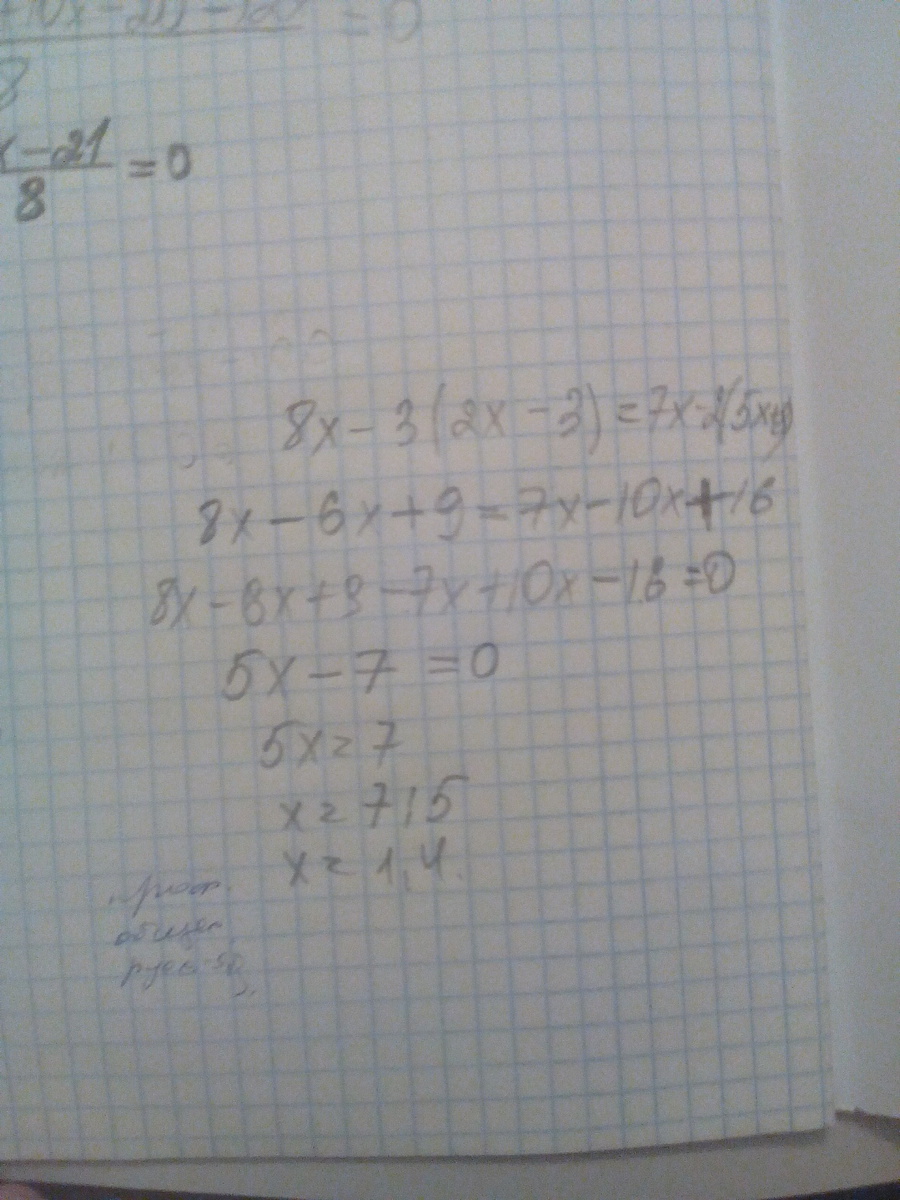 x-21
8
=0
8x-3(2x-3)=7x-2(5x+8)
8x-6x+9=7x-10x+16
8x-6x+9-7x+10x-16=0
5x-7=0
5x=7
x=7:5
x=1,4.